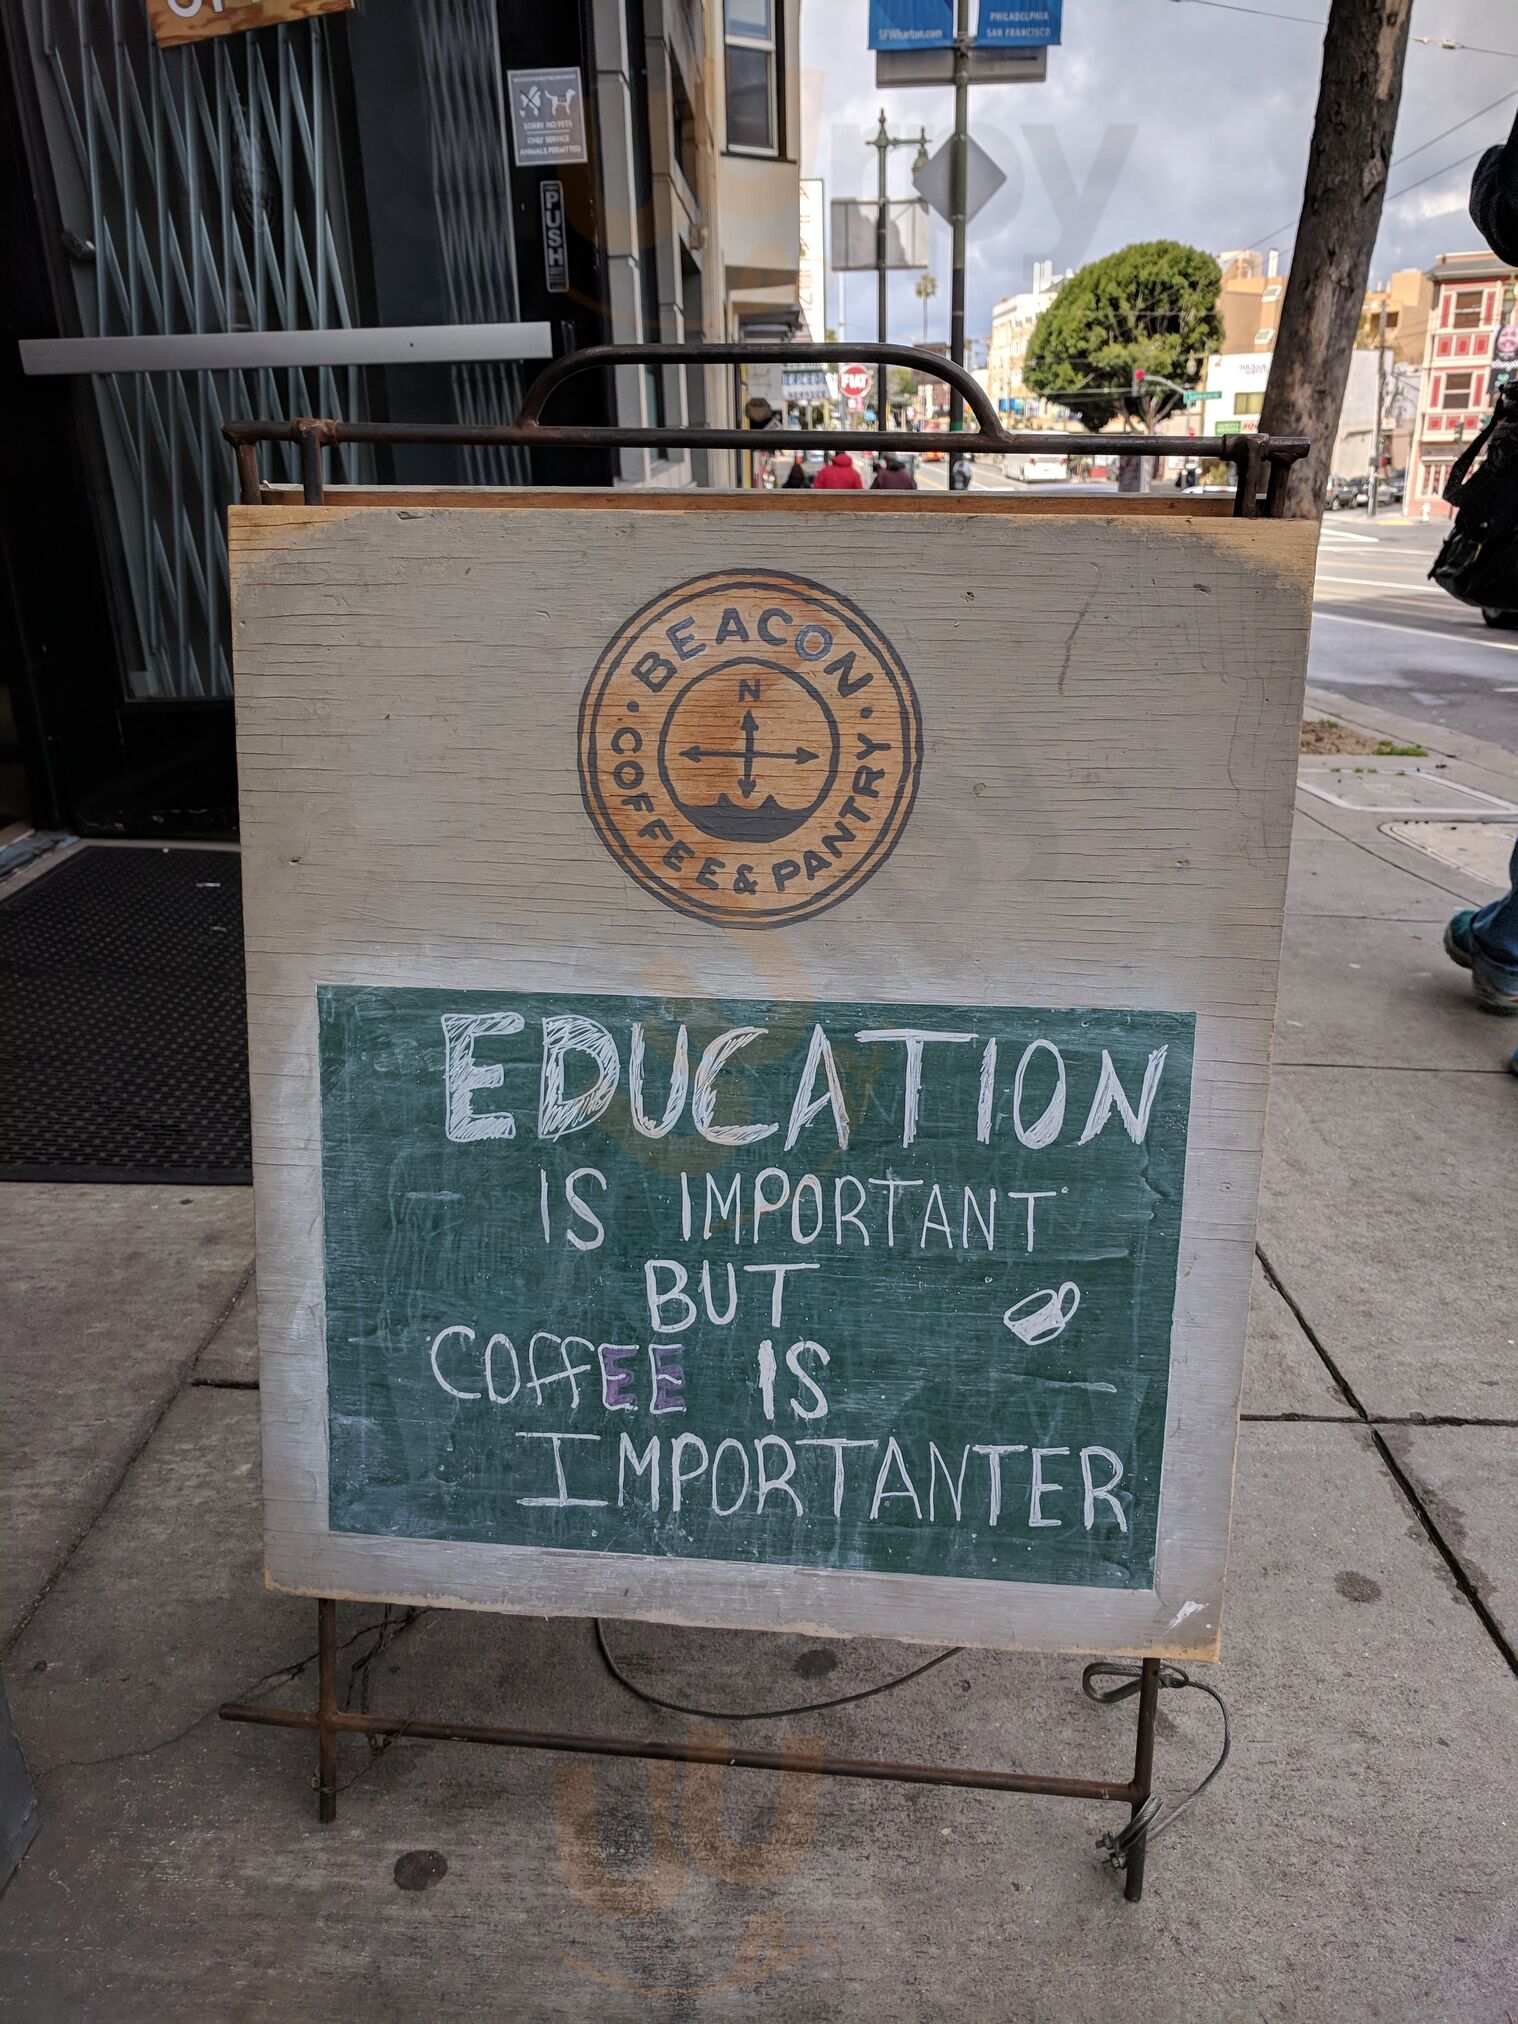 SFWharton.com
PHILADELPHIA
SAN FRANCISCO
SORRY NO PETS
ONLY SERVICE
ANIMALS PERMITTED
PUSH
FIAT
BEACON
COFFEE & PANTRY
N
EDUCATION
IS IMPORTANT
BUT
COffEE IS
IMPORTANTER